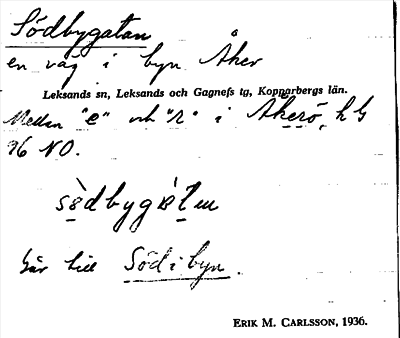 Södbygatan
en väg i byn Åker
Leksands sn, Leksands och Gagnefs tg, Kopparbergs län.
Mellan "e" och "r" i Åkerö, h G
76 NO.
sö̀dbygátan
Går till Söd i byn.
ERIK M. CARLSSON, 1936.